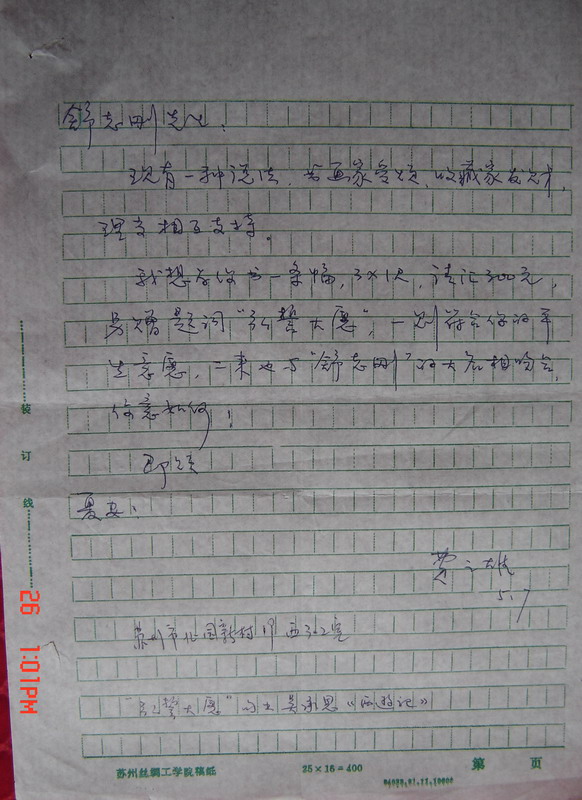 舒志刚先生：
现有一种说法，书画家受贫，收藏家发财，
理应相互支持。
我想为你书一条幅，3×1尺，请汇300元，
另赠题词“弘誓大愿”，一则符合你的平
生意愿，二来也与“舒志刚”的大名相吻合，
你意如何！
即颂
夏安！
费之雄
5.7
苏州市北园新村 西302室
“弘誓大愿”句出吴承恩《西游记》
装
订
线
26 1:01PM
苏州丝绸工学院稿纸
25×16=400
第 页